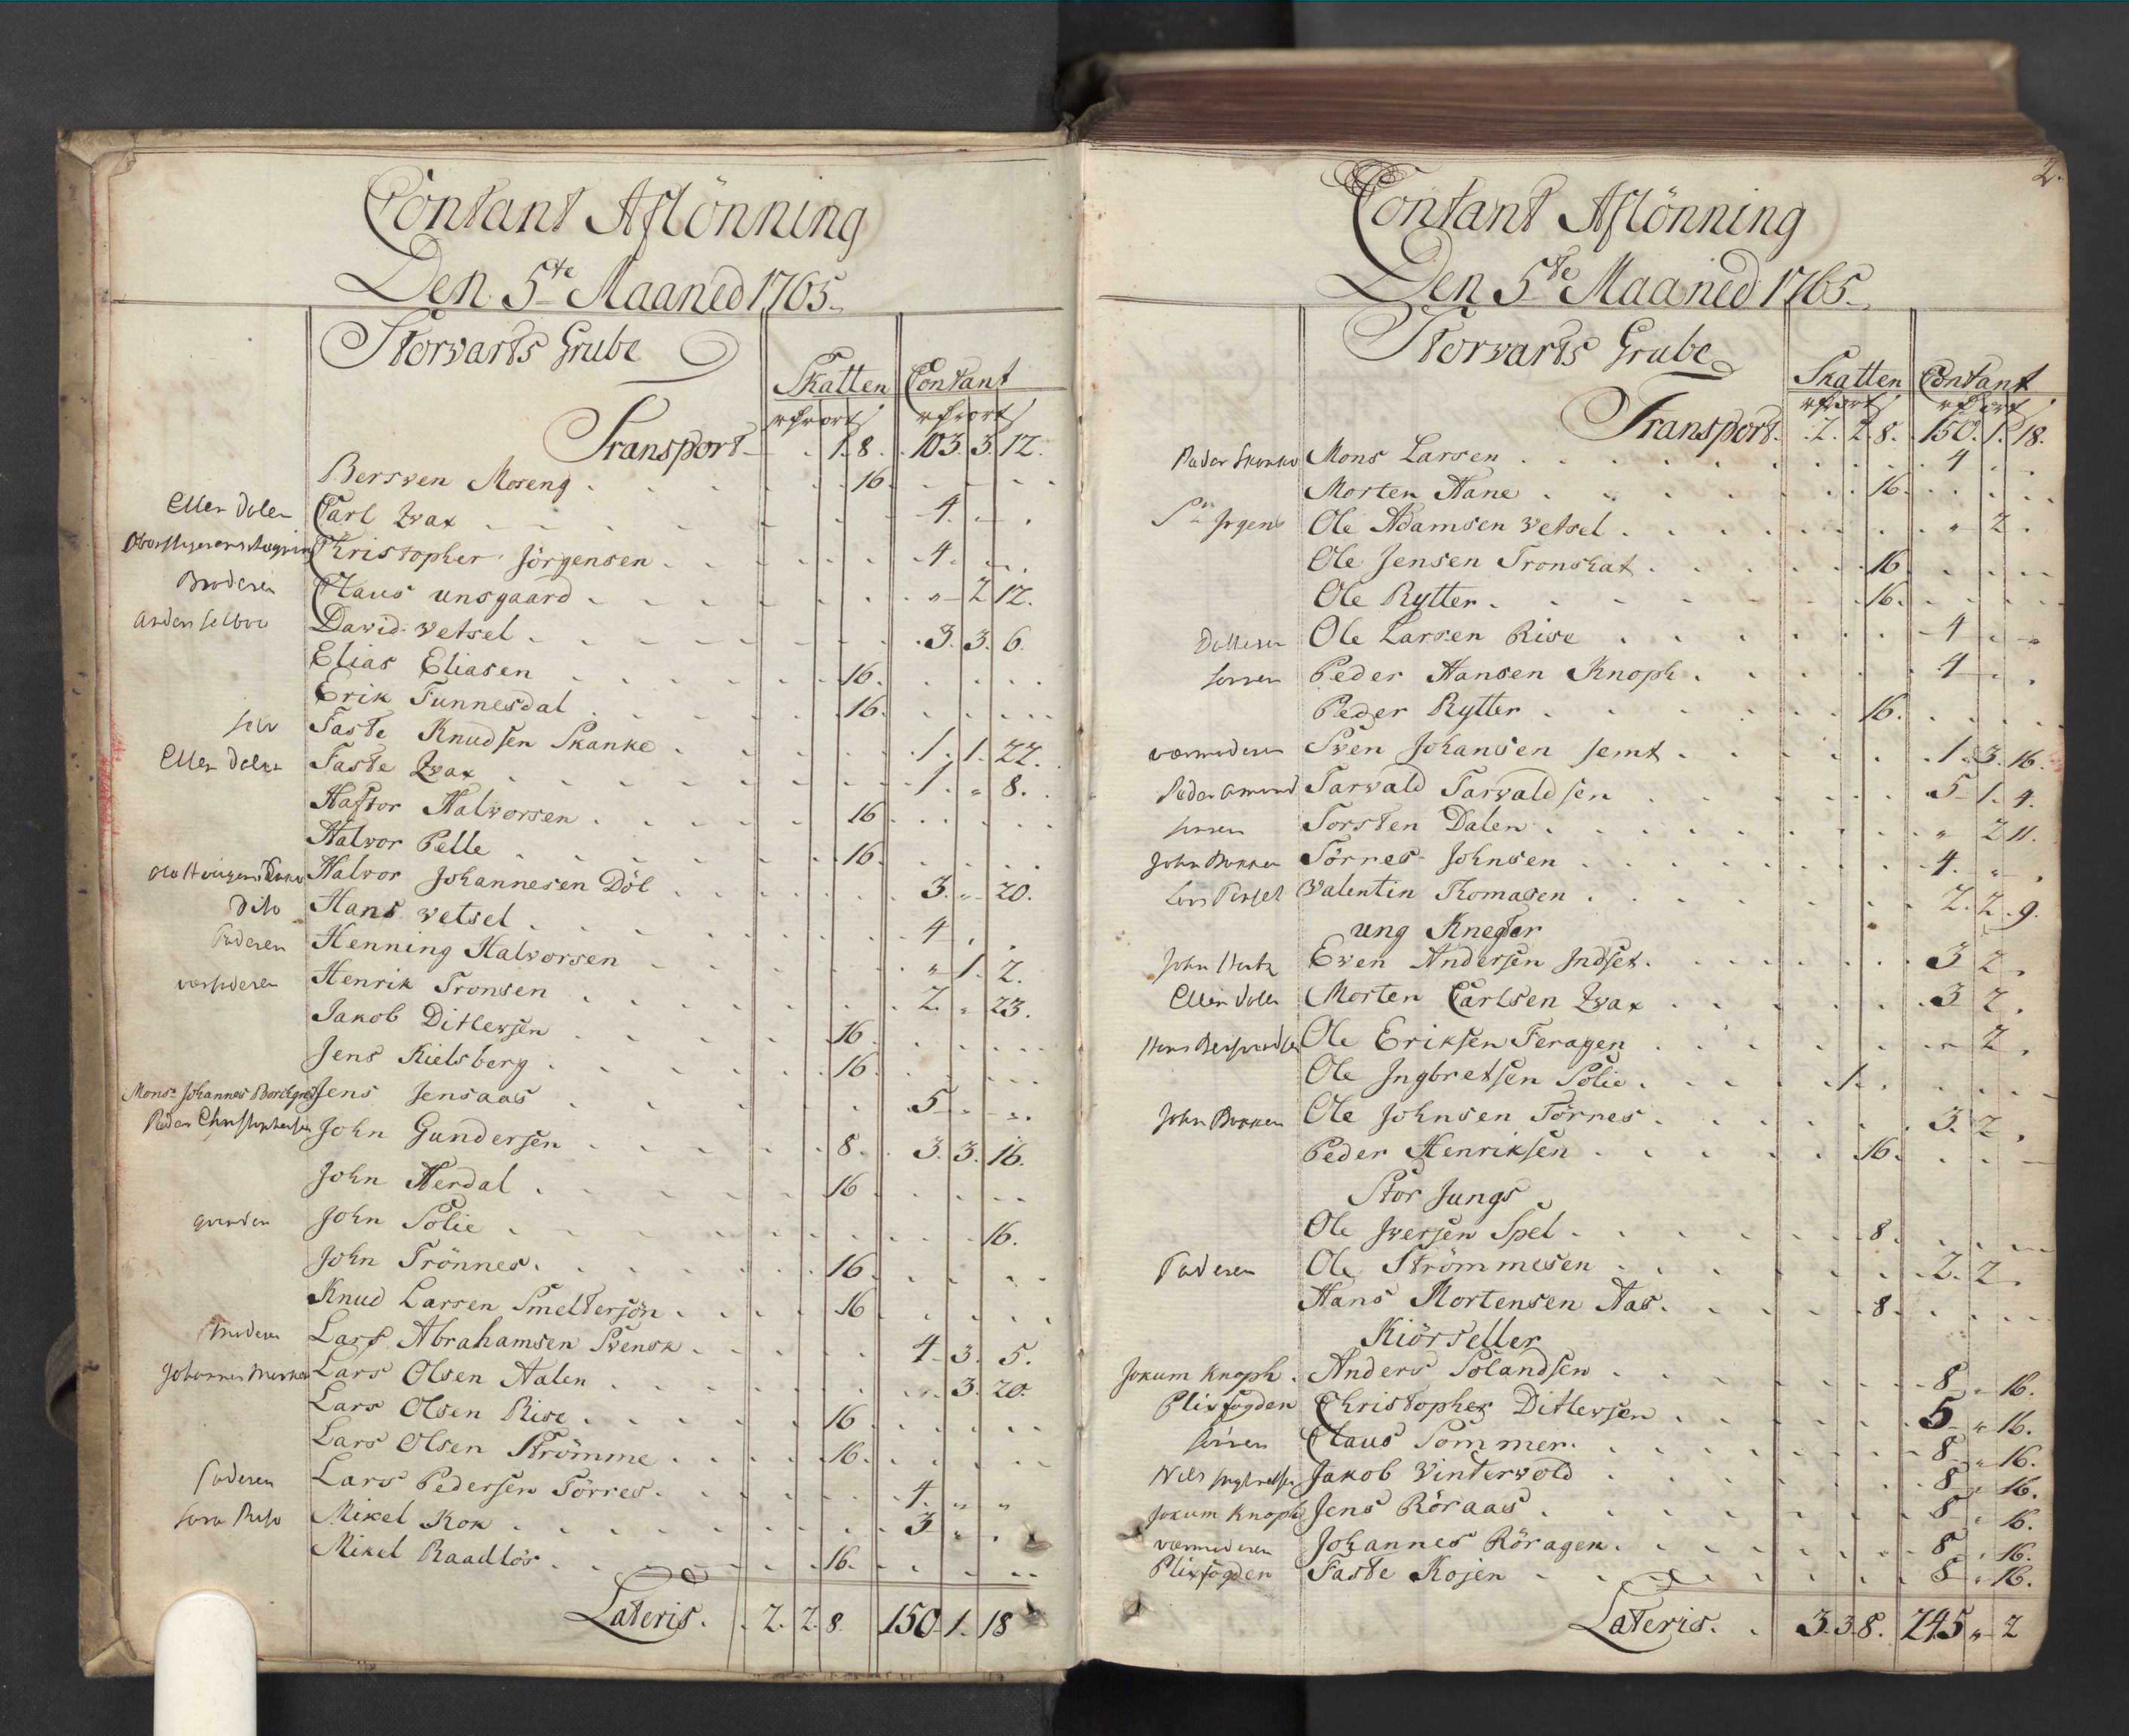 Contant Aflönning
Den 5te Maaned 1765.
Storvarts Grube
Skatten Contant
Transport . 1. 8. 103. 3. 12.
Berswen Moseng . 16
Ellen Dalen Carl Zvax 4.
Christopher Jörgensen 4.
Broderen Claus unsgaard „ 2 12.
David Vetsel 3. 3. 6.
Elias Eliasen 16.
Erik Tunnesdal 16.
selv Faste Knudsen Skanke 1. 1. 22.
Ellen Dalen Faste Zvax 1. „ 8.
Haftor Halvorsen 16
Halvor Pelle 16.
Halvor Johannesen Döl 3. „ 20.
Dito Hans Vetsel 4
Faderen Henning Halvorsen „ 1. 2.
Henrik Tronsen 2. „ 23.
Jakob Ditlevsen 16
Jens Kielsberg 16.
Mons. Johannes Borchgrev Jens Jensaas 5. „ „
Peder Christophersen John Gundersen 8. 3. 3. 16.
John Herdal 16
qvinden John Solie 16.
John Trönnes 16.
Knud Larsen Smeltersön 16
Lars Abrahamsen Svensk 4. 3. 5.
Lars Olsen Aalen „ 3. 20.
Lars Olsen Rise 16
Lars Olsen Strömme 16.
Faderen Lars Pedersen Törres 4. „ „
Mikel Kok 3 „
Mikel Raadlös 16.
Lateris. 2. 2. 8. 150. 1. 18
2.
Contant Aflönning
Den 5te Maaned 1765.
Storvarts Grube
Skatten Contant
Transport. 2. 2. 8. 150. 1. 18.
Peder Skanke Mons Larsen 4
Morten Hane 16.
Ole Adamsen Vetsel „ 2.
Ole Jensen Tronskat 16
Ole Rytter 16.
Datteren Ole Larsen Rise 4
sönen Peder Hansen Knoph 4
Peder Rytter 16.
værmoderen Sven Johansen Jemt 1. 3. 16.
Peder Amund Tarvald Tarvaldsen 5. 1. 4.
sönen Torsten Dalen „ 2 11.
John Bakken Törres Johnsen 4. „
Valentin Thomasen 2. 2. 9.
ung Knegter
Even Andersen Indset 3 2.
Ellen Dalen Morten Carlsen Zvax 3 2.
Ole Eriksen Feragen „ 2.
Ole Ingbretsen Solie 1.
John Bakken Ole Johnsen Törres 3. 2.
Peder Henriksen 16.
Stor Jungs
Ole Iversen Spel 8.
Faderen Ole Strömmesen 2. 2.
Hans Mortensen Aas 8.
Kiörseller
Jokum Knoph Anders Solandsen 8 „ 16.
Plixfogden Christopher Ditlevsen 5 „ 16.
sönen Claus Sommer 8 „ 16.
Nils Ingbretsen Jakob Vintervold 8 „ 16.
Jokum Knoph Jens Röraas 8 „ 16.
værmoderen Johannes Röragen 8 „ 16.
Plixfogden Faste Kojen 8 „ 16.
Lateris. 3. 3. 8. 245 „ 2